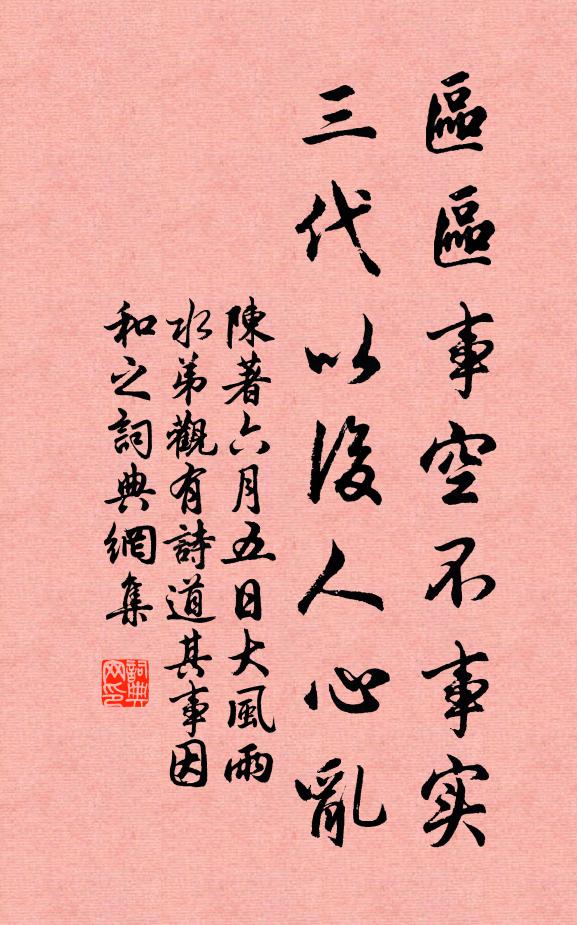 區區事空不事实
三代以後人心亂
陳著六月五日大風雨
水弟觀有詩道其事因
和之詞典網集
詞典网印